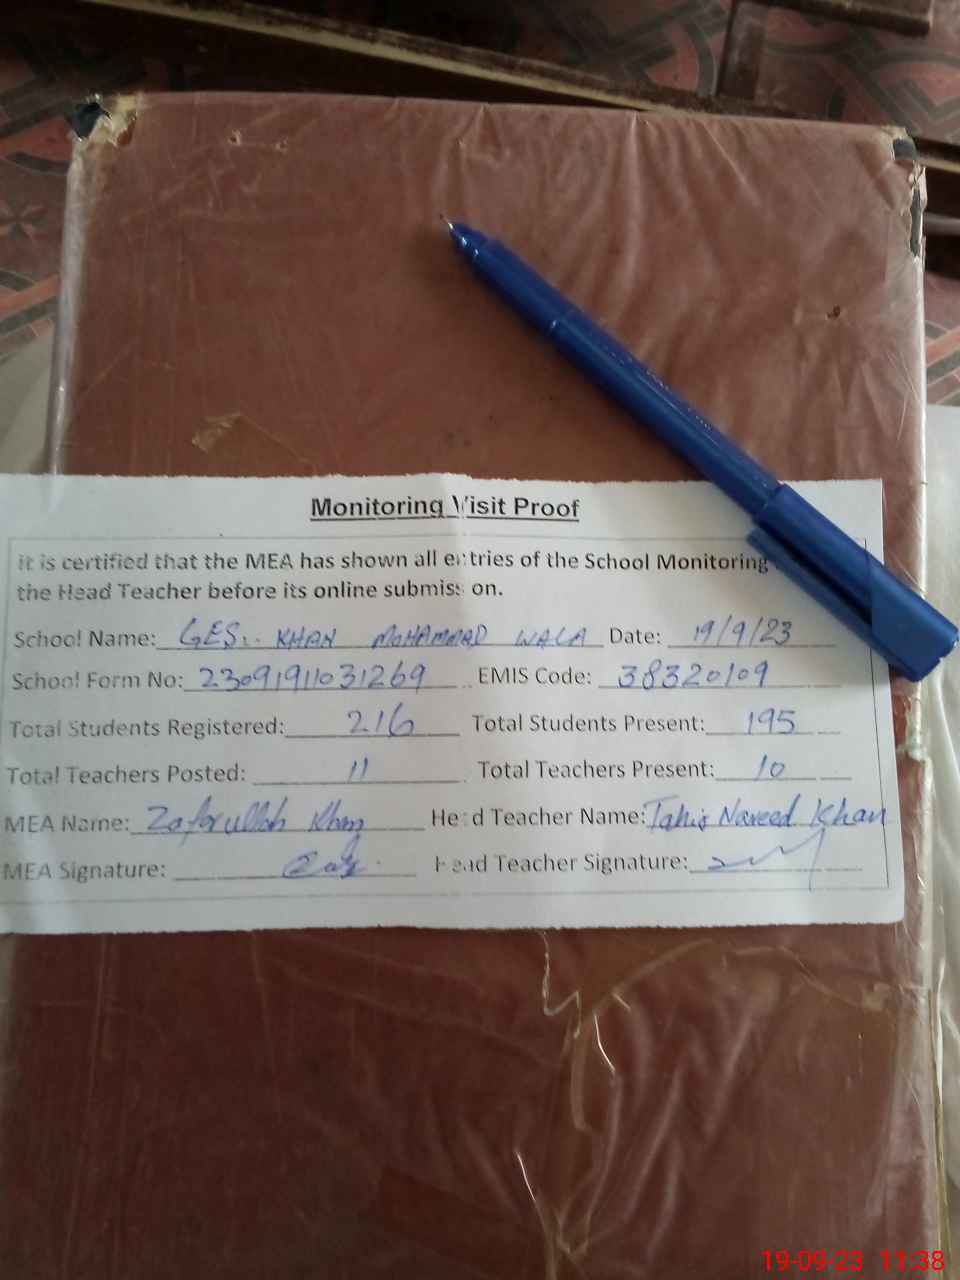 Monitoring Visit Proof
it is certified that the MEA has shown all entries of the School Monitoring
the Head Teacher before its online submission.
School Name: GES. KHAN MOHAMMAD WALA Date: 19/9/23
School Form No: 2309191031269 EMIS Code: 38320109
Total Students Registered: 216 Total Students Present: 195
Total Teachers Posted: 11 Total Teachers Present: 10
MEA Name: Zafarullah Khan Head Teacher Name: Tahir Naveed Khan
MEA Signature: Head Teacher Signature:
19-09-23 11:38